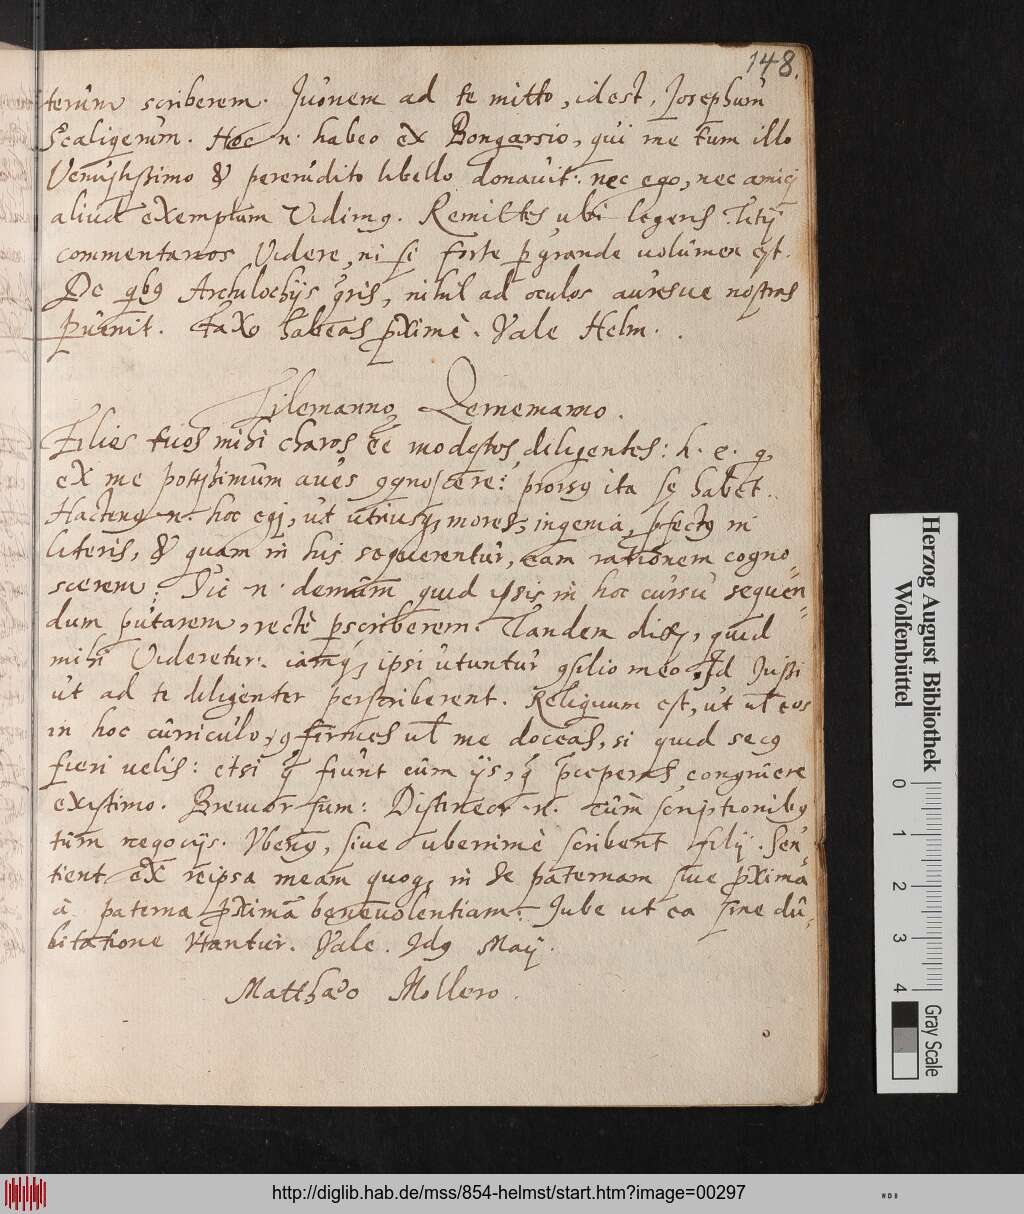 148.
terùm scriberem. Juonem ad te mitto, idest, Josephum
Scaligerùm. Hoc n. habeo ex Bongarsio, qui me tum illo
Venustissimo & pererúdito libello donavit. nec ego, nec amicj
aliud exemplum Vidim9. Remittes ubi legeris. Titij
commentarios Videre, ni si forte p grande volùmen est.
De qb9 Archilochijs gris, nihil ad oculos auresue nostras
puenit. Faxo habeas pximè. Vale Helm.
Tilemanno Qernemanno.
Filios tuos mihi charos et modestos diligentes: h. e. q
ex me potissimùm aues 9gnoscere: prors9 ita se habet.
Hacten9 n. hoc egi, ut utriusq; mores, ingenia, pfect9 in
literis, & quam in his sequerentur, eam rationem cogno-
scerem. Sic n. demùm quid ipsis in hoc cursu sequen-
dum putarem, rectè pscriberem. Tandem dixj, quid
mihi Videretur. iamq; ipsi utuntur 9silio meo. Id Jussi
ut ad te diligenter perscriberent. Reliquum est, ut ul eos
in hoc cùrriculo, 9firmes ul me doceas, si quid sec9
fieri uelis: etsi q fiunt cùm ijs, q pceperas congruere
existimo. Breuior sum: Distineor n. cùm scriptionib9
tùm negocijs. Vberi9, siue uberrimè scribent filij. Sen-
tient ex reipsa meam quoq; in se paternam siue pxima
à paterna pximâ beneuolentiam. Jube ut ea sine dù-
bitatione Vtantur. Vale. Id9 Maij.
Matthæo Mollero.
Herzog August Bibliothek
Wolfenbüttel
0 1 2 3 4
Gray Scale
http://diglib.hab.de/mss/854-helmst/start.htm?image=00297
WDB